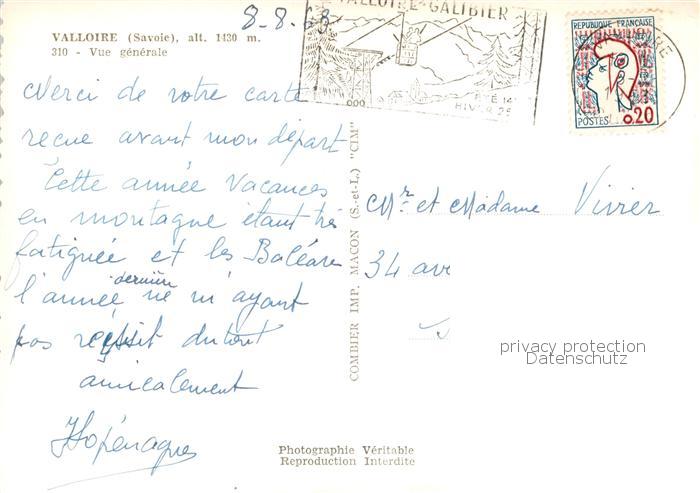 VALLOIRE (Savoie), alt. 1430 m.
310 - Vue générale
8-8-63
VALLOIRE-GALIBIER
ÉTÉ 14
HIVER 25
REPUBLIQUE FRANÇAISE
POSTES 0,20
Merci de votre carte
recue avant mon départ
Cette année Vacances
en montagne étant très
fatiguée et les Baléare
dernière
l'année ne m'ayant
pas réussit du tout
amicalement
COMBIER IMP. MACON (S.-et-L.) "CIM"
Mr et Madame Vivier
34 ave
privacy protection
Datenschutz
Photographie Véritable
Reproduction Interdite